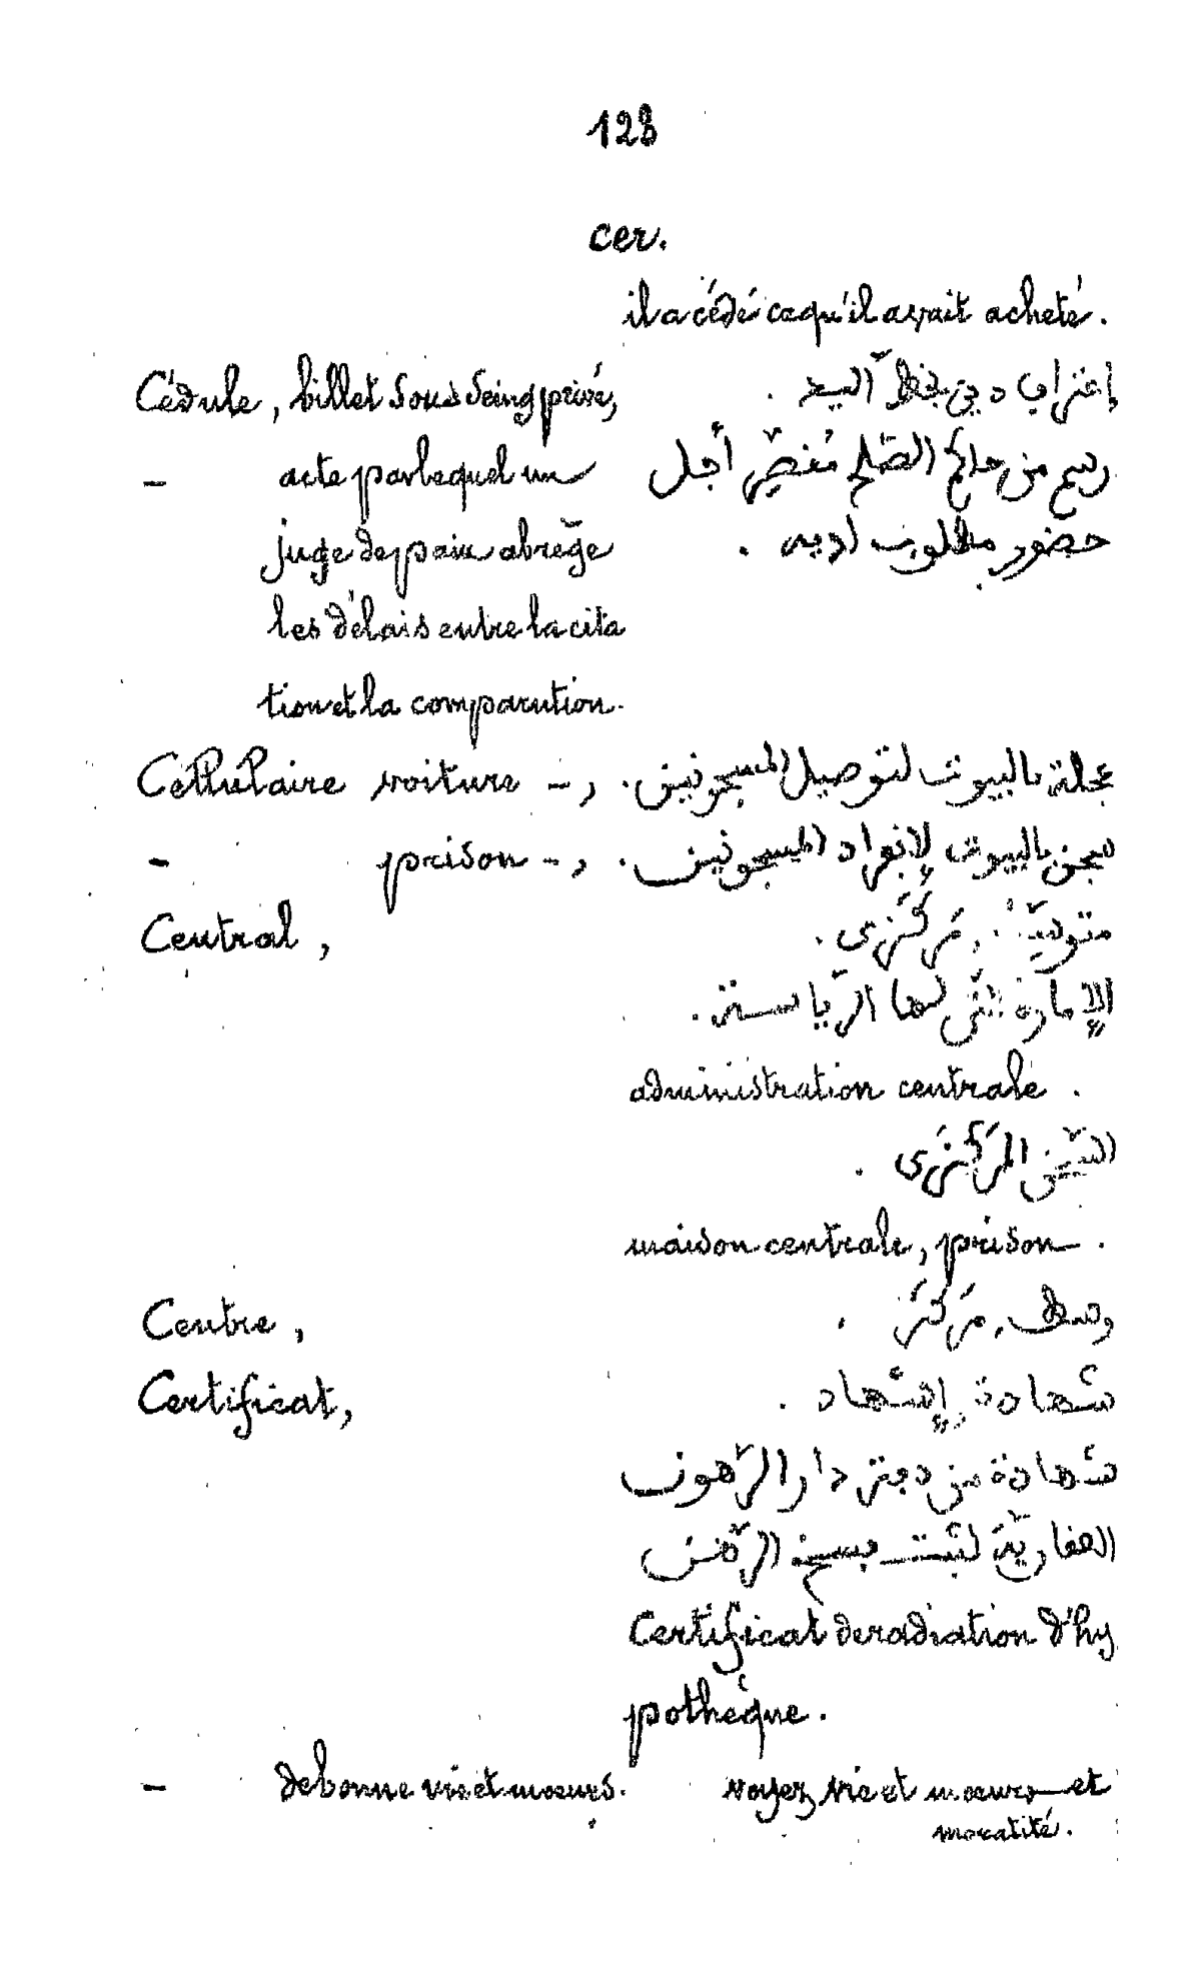 123
cer.
il a cédé ce qu'il avait acheté.
Cédule, billet sous seing privé, إعتراف دين بخط اليد .
— acte par lequel un رسم من حاكم الصّلح مُنقِص أجل
juge de paix abrège حضور مطلوب لديه .
les délais entre la cita
tion et la comparution.
Cellulaire voiture —, عجلة بالبيوت لتوصيل المسجونين .
— prison —, سجن بالبيوت لإنفراد المسجونين .
Central, متوسِّط , مَركَزى .
الإمارة الّتى لها الرّياسة .
administration centrale .
السّجن المَركَزى .
maison centrale, prison .
Centre, وسط , مَركَز .
Certificat, شهادة , إشهاد .
شهادة من دفتر دار الرّهون
العقاريّة لثبت فسخ الرّهن
Certificat de radiation d'hy
pothèque .
— de bonne vie et mœurs. voyez, vie et mœurs et
moralité .